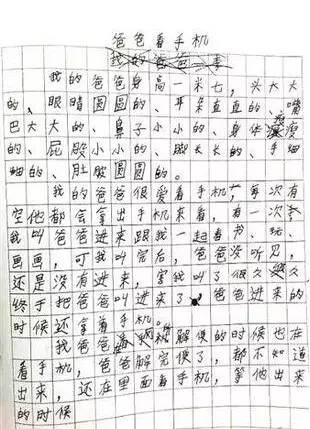 爸爸看手机
我的爸爸
我的爸爸身高一米七，头大大
的、眼睛圆圆的、耳朵直直的、嘴
巴大大的、鼻子小小的、身体瘦瘦
的、屁股小小的、脚长长的、手细
细的、肚皮圆圆的。
我的爸爸很爱看手机，每次有
空他都会拿出手机来看，有一次
我叫爸爸进来跟我一起看书、玩、
画画，可我叫完后，爸爸没听见，
还是没有进来，害我叫了很久很久
终于把爸爸叫进来了，爸爸进来的
时候还拿着手机。
我爸爸解便的时候也在
看手机，爸爸解完便了，都不知道
出来，还在里面看手机，等他出来
的时候